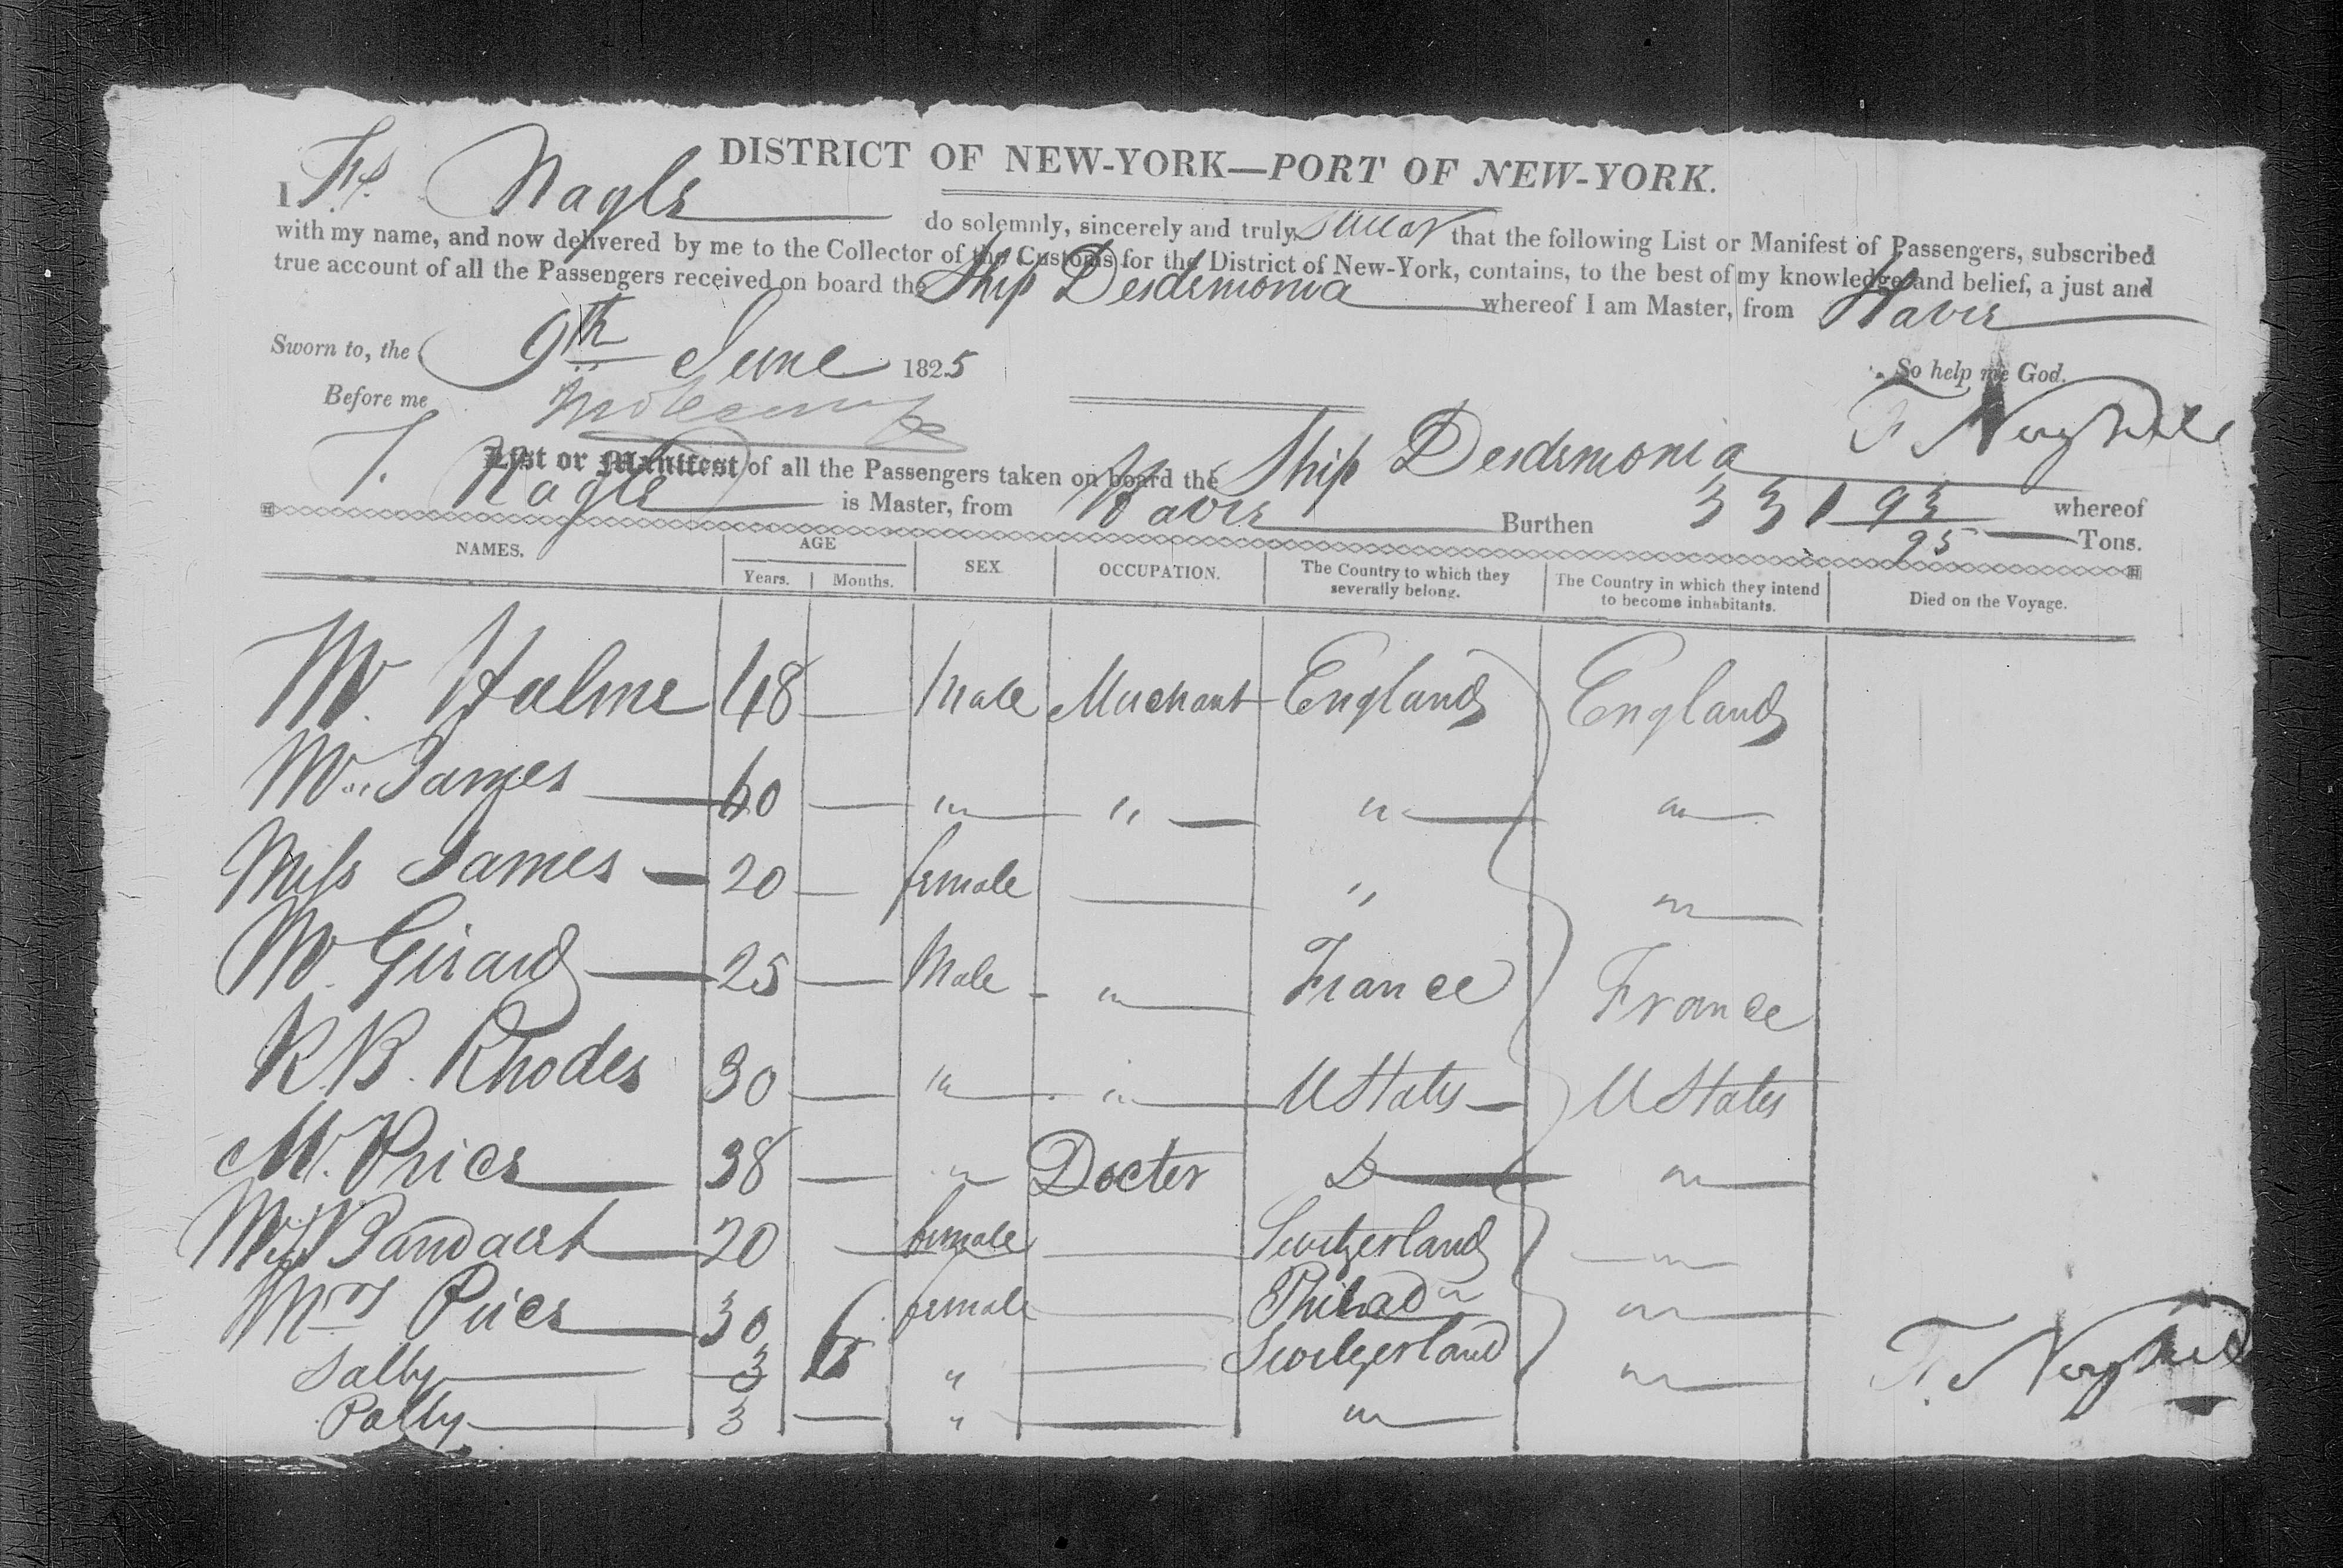 DISTRICT OF NEW-YORK—PORT OF NEW-YORK.
I Frs. Nagle do solemnly, sincerely and truly swear that the following List or Manifest of Passengers, subscribed
with my name, and now delivered by me to the Collector of the Customs for the District of New-York, contains, to the best of my knowledge and belief, a just and
true account of all the Passengers received on board the Ship Desdemonia whereof I am Master, from Havre
Sworn to, the 9th June 1825 So help me God.
Before me
List or Manifest of all the Passengers taken on board the Ship Desdemonia whereof
F. Nagle is Master, from Havre Burthen 331 93/95 Tons.
NAMES. AGE Years. Months. SEX. OCCUPATION. The Country to which they severally belong. The Country in which they intend to become inhabitants. Died on the Voyage.
M. Hulme 48 — Male Merchant England England
Mr. James — 60 — " " " "
Miss James — 20 — female — " "
M. Girard — 25 — Male " France France
R.B. Rhodes 30 — " " U States — U States
M. Price 38 — " Docter Do "
20 — female — Switzerland "
Mrs Price 30 female — Philada "
Sally — 3 6 " — Switzerland "
Polly — 3 — " — "